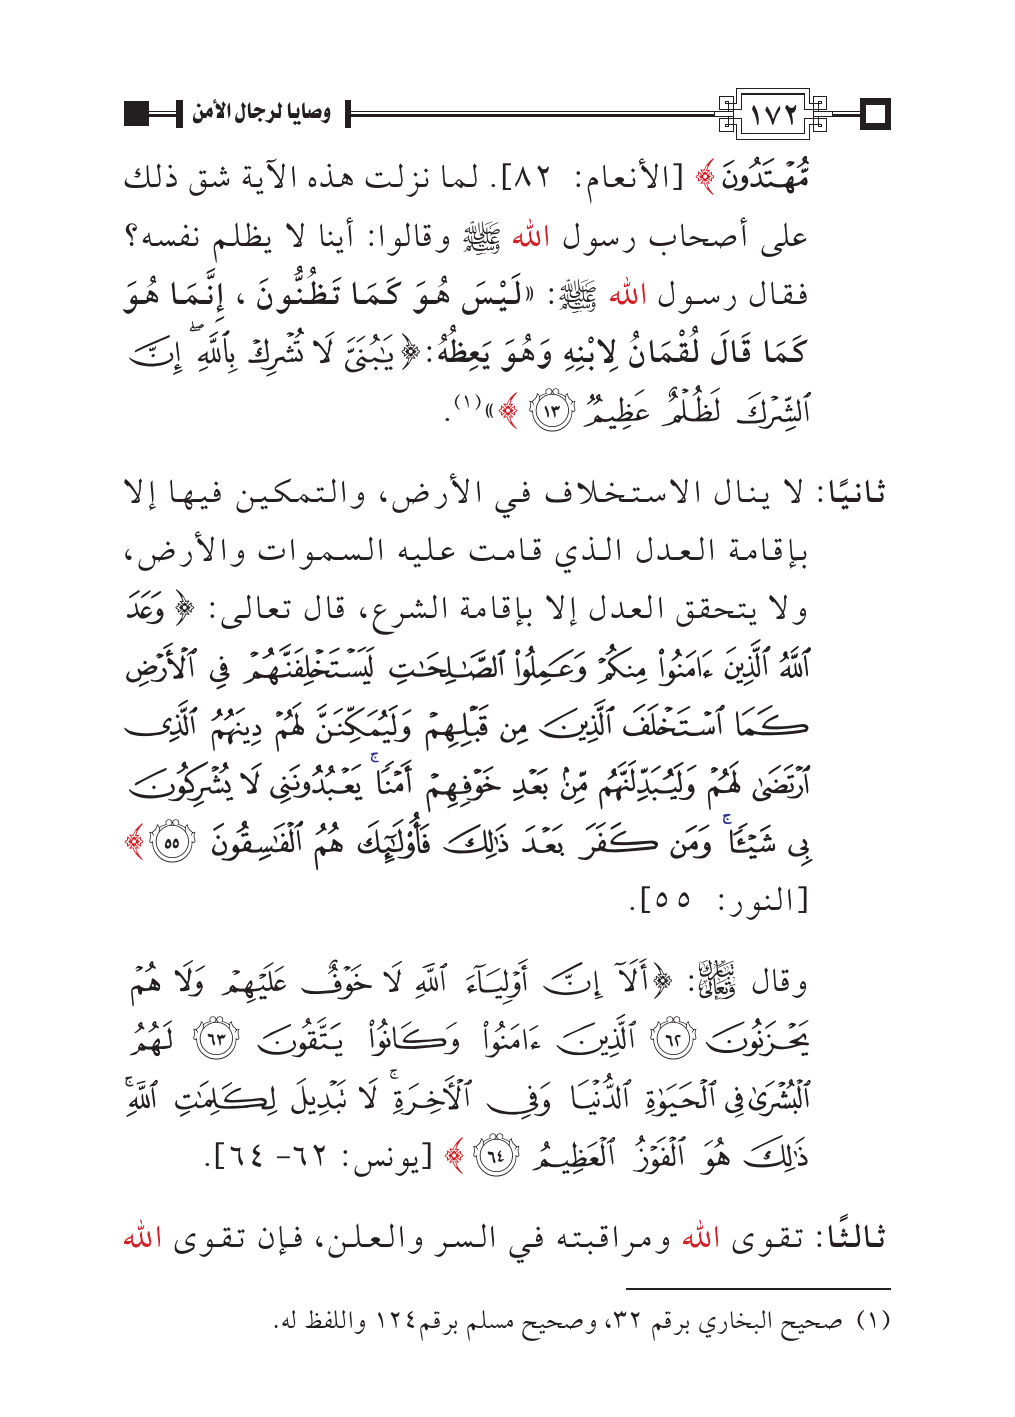 ١٧٢ وصايا لرجال الأمن
مُّهۡتَدُونَ ﴾ [الأنعام: ٨٢]. لما نزلت هذه الآية شق ذلك
على أصحاب رسول الله ﷺ وقالوا: أينا لا يظلم نفسه؟
فقال رسول الله ﷺ: «لَيْسَ هُوَ كَمَا تَظُنُّونَ ، إِنَّمَا هُوَ
كَمَا قَالَ لُقْمَانُ لِابْنِهِ وَهُوَ يَعِظُهُ: ﴿ يَٰبُنَيَّ لَا تُشۡرِكۡ بِٱللَّهِۖ إِنَّ
ٱلشِّرۡكَ لَظُلۡمٌ عَظِيمٞ ١٣ ﴾»(١).
ثانيًا: لا ينال الاستخلاف في الأرض، والتمكين فيها إلا
بإقامة العدل الذي قامت عليه السموات والأرض،
ولا يتحقق العدل إلا بإقامة الشرع، قال تعالى: ﴿ وَعَدَ
ٱللَّهُ ٱلَّذِينَ ءَامَنُواْ مِنكُمۡ وَعَمِلُواْ ٱلصَّٰلِحَٰتِ لَيَسۡتَخۡلِفَنَّهُمۡ فِي ٱلۡأَرۡضِ
كَمَا ٱسۡتَخۡلَفَ ٱلَّذِينَ مِن قَبۡلِهِمۡ وَلَيُمَكِّنَنَّ لَهُمۡ دِينَهُمُ ٱلَّذِي
ٱرۡتَضَىٰ لَهُمۡ وَلَيُبَدِّلَنَّهُم مِّنۢ بَعۡدِ خَوۡفِهِمۡ أَمۡنٗاۚ يَعۡبُدُونَنِي لَا يُشۡرِكُونَ
بِي شَيۡـٔٗاۚ وَمَن كَفَرَ بَعۡدَ ذَٰلِكَ فَأُوْلَٰٓئِكَ هُمُ ٱلۡفَٰسِقُونَ ٥٥ ﴾
[النور: ٥٥].
وقال تبارك وتعالى: ﴿ أَلَآ إِنَّ أَوۡلِيَآءَ ٱللَّهِ لَا خَوۡفٌ عَلَيۡهِمۡ وَلَا هُمۡ
يَحۡزَنُونَ ٦٢ ٱلَّذِينَ ءَامَنُواْ وَكَانُواْ يَتَّقُونَ ٦٣ لَهُمُ
ٱلۡبُشۡرَىٰ فِي ٱلۡحَيَوٰةِ ٱلدُّنۡيَا وَفِي ٱلۡأٓخِرَةِۚ لَا تَبۡدِيلَ لِكَلِمَٰتِ ٱللَّهِۚ
ذَٰلِكَ هُوَ ٱلۡفَوۡزُ ٱلۡعَظِيمُ ٦٤ ﴾ [يونس: ٦٢- ٦٤].
ثالثًا: تقوى الله ومراقبته في السر والعلن، فإن تقوى الله
(١) صحيح البخاري برقم ٣٢، وصحيح مسلم برقم١٢٤ واللفظ له.